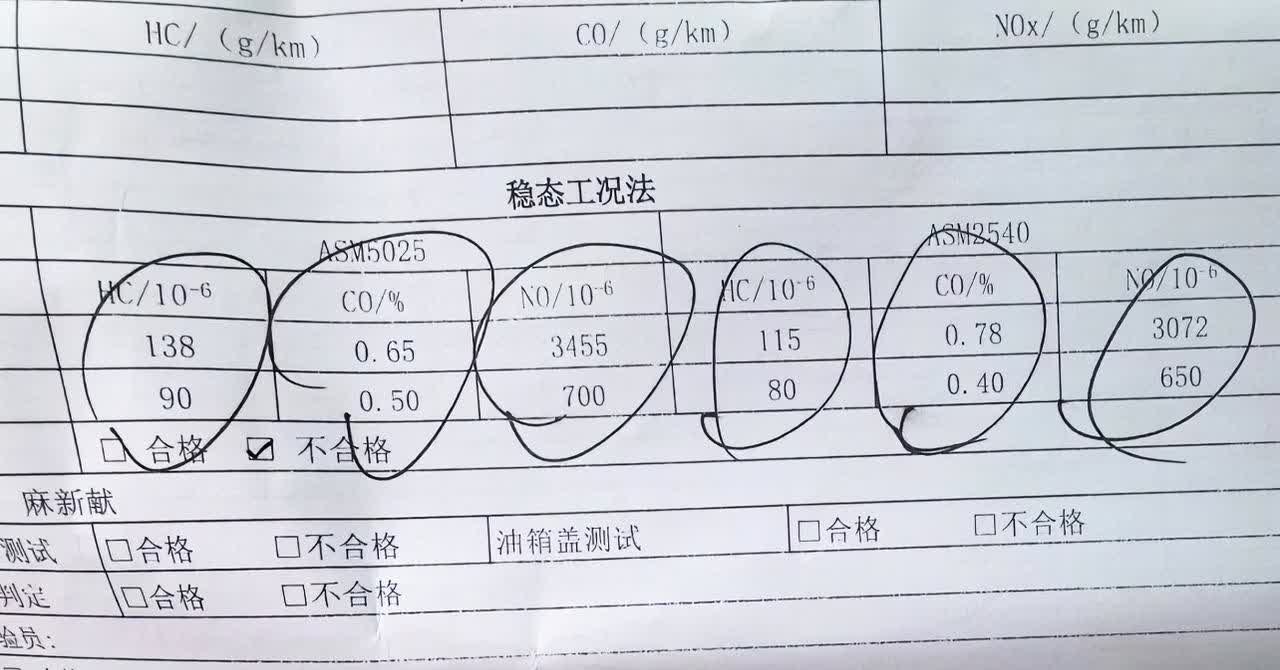 HC/（g/km） CO/（g/km） NOx/（g/km）
稳态工况法
ASM5025 ASM2540
HC/10⁻⁶ CO/% NO/10⁻⁶ HC/10⁻⁶ CO/% NO/10⁻⁶
138 0.65 3455 115 0.78 3072
90 0.50 700 80 0.40 650
□ 合格 ☑ 不合格
麻新献
测试 □合格 □不合格 油箱盖测试 □合格 □不合格
判定 □合格 □不合格
验员: